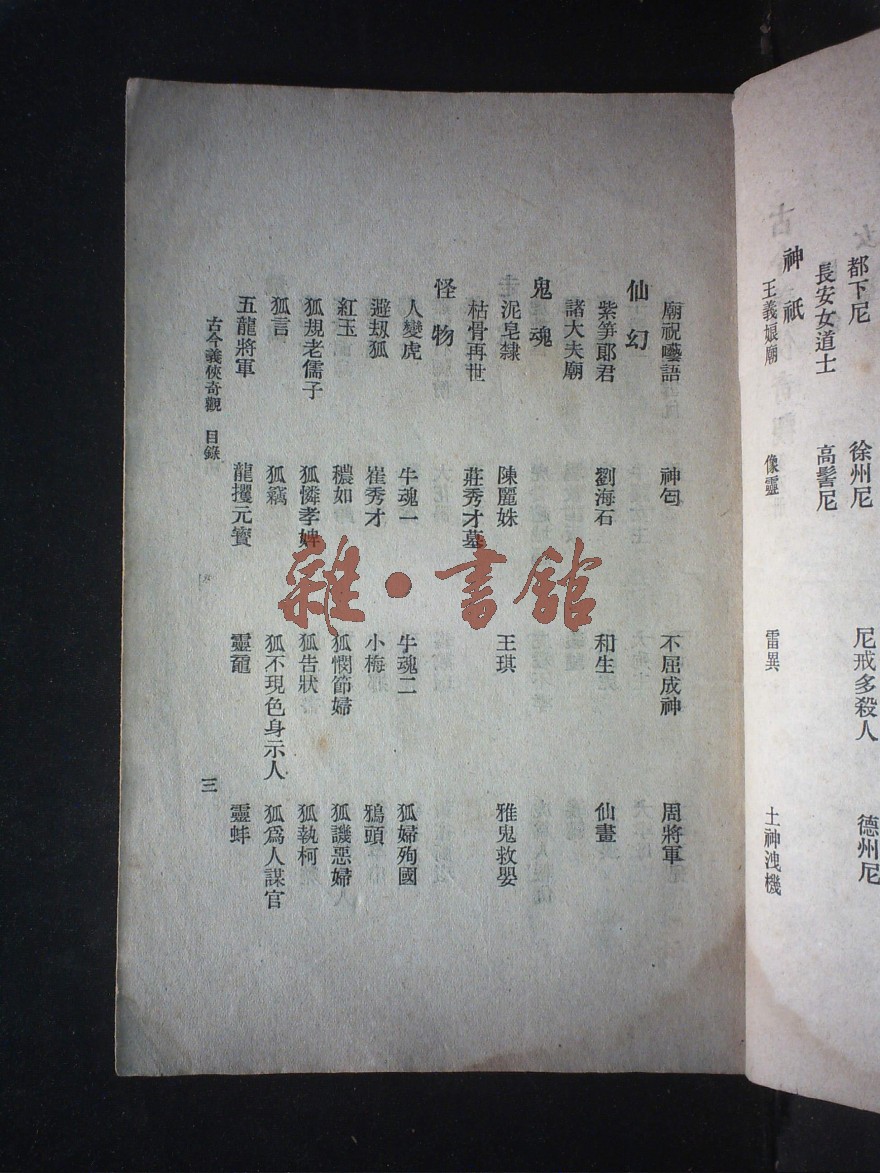 都下尼　徐州尼　尼戒多殺人　德州尼
長安女道士　高髻尼
神祇
王義娘廟　像靈　雷異　土神洩機
廟祝囈語　神匄　不屈成神　周將軍
仙幻
紫笋郎君　劉海石　和生　仙畫
諸大夫廟
鬼魂
泥皂隸　陳麗姝　王琪　雅鬼救嬰
枯骨再世　莊秀才墓
怪物
人變虎　牛魂一　牛魂二　狐婦殉國
避刼狐　崔秀才　小梅　鴉頭
紅玉　穠如　狐憫節婦　狐譏惡婦人
狐規老儒子　狐憐孝婢　狐告狀　狐執柯
狐言　狐竊　狐不現色身示人　狐爲人謀官
五龍將軍　龍攫元寶　靈黿　靈蚌
古今義俠奇觀　目錄
三
雜·書館